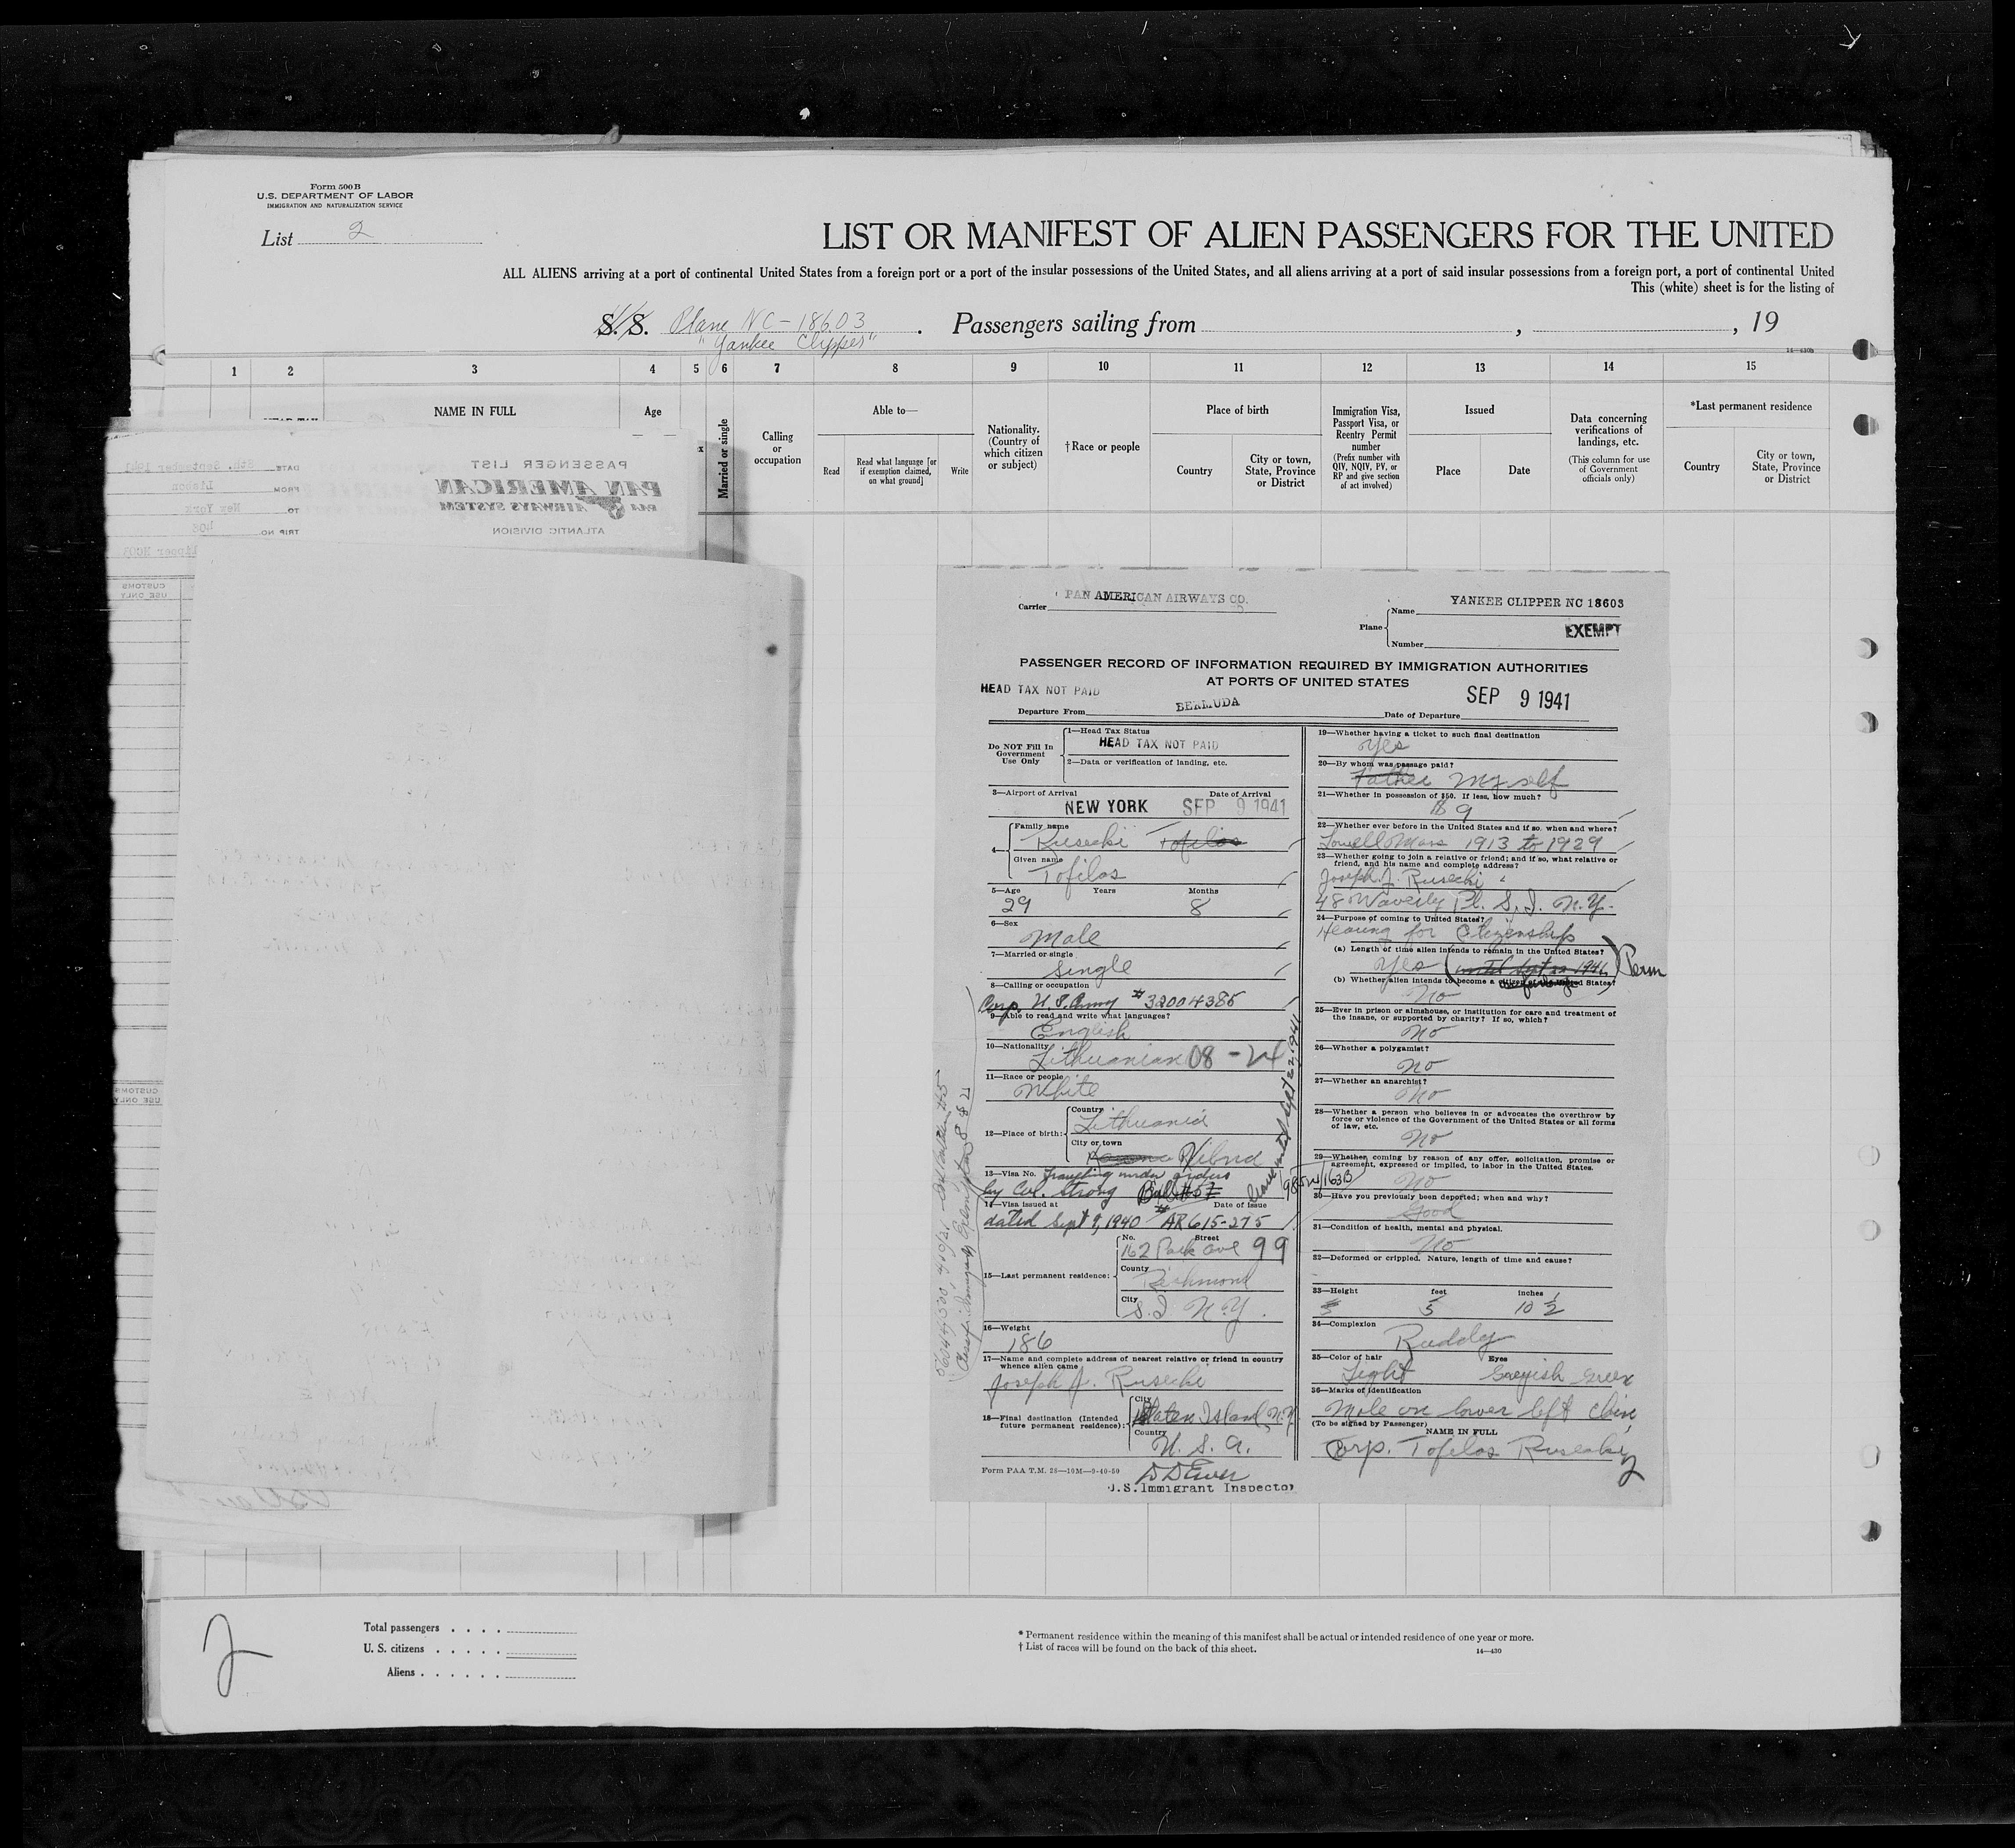 Form 500 B
U.S. DEPARTMENT OF LABOR
IMMIGRATION AND NATURALIZATION SERVICE
List 2
LIST OR MANIFEST OF ALIEN PASSENGERS FOR THE UNITED
ALL ALIENS arriving at a port of continental United States from a foreign port or a port of the insular possessions of the United States, and all aliens arriving at a port of said insular possessions from a foreign port, a port of continental United
This (white) sheet is for the listing of
S.S. Plane NC-18603 . Passengers sailing from , , 19
"Yankee Clipper"
14-430B
1 2 3 4 5 6 7 8 9 10 11 12 13 14 15
NAME IN FULL
Age
Married or single
Calling or occupation
Able to—
Read
Read what language [or if exemption claimed, on what ground]
Write
Nationality. (Country of which citizen or subject)
†Race or people
Place of birth
Country
City or town, State, Province or District
Immigration Visa, Passport Visa, or Reentry Permit number
(Prefix number with QIV, NQIV, PV, or RP and give section of act involved)
Issued
Place
Date
Data concerning verifications of landings, etc.
(This column for use of Government officials only)
*Last permanent residence
Country
City or town, State, Province or District
PASSENGER LIST
PAN AMERICAN
PAA AIRWAYS SYSTEM
ATLANTIC DIVISION
DATE 8th. September 1941
FROM Lisbon
TO New York
TRIP NO. 408
CUSTOMS
USE ONLY
CUSTOMS
USE ONLY
Carrier PAN AMERICAN AIRWAYS CO.
Plane Name YANKEE CLIPPER NC 18603
EXEMPT
Number
PASSENGER RECORD OF INFORMATION REQUIRED BY IMMIGRATION AUTHORITIES
AT PORTS OF UNITED STATES
HEAD TAX NOT PAID
Departure From BERMUDA Date of Departure SEP 9 1941
Do NOT Fill In Government Use Only
1—Head Tax Status
HEAD TAX NOT PAID
2—Data or verification of landing, etc.
3—Airport of Arrival Date of Arrival
NEW YORK SEP 9 1941
4— Family name
Rusecki Tofilos
Given name
Tofilos
5—Age Years Months
29 8
6—Sex
Male
7—Married or single
Single
8—Calling or occupation
Corp. U.S. Army #32004385
9—Able to read and write what languages?
English
10—Nationality
Lithuanian 08-24
11—Race or people
White
12—Place of birth: Country
Lithuania
City or town
Vilna
13—Visa No. Traveling under orders
by Col. Strong
14—Visa issued at Date of issue
dated Sept 9, 1940 # AR 615-275
No. Street
162 Park Ave 99
15—Last permanent residence:
County
Richmond
City
S.I. N.Y.
16—Weight
186
17—Name and complete address of nearest relative or friend in country whence alien came
Joseph J. Rusecki
18—Final destination (Intended future permanent residence):
City
Staten Island, N.Y.
Country
U.S.A.
Form PAA T.M. 28—10M—9-40-50
U.S. Immigrant Inspector
19—Whether having a ticket to such final destination
Yes
20—By whom was passage paid?
Father Myself
21—Whether in possession of $50. If less, how much?
$ 9
22—Whether ever before in the United States and if so, when and where?
Lowell Mass 1913 to 1929
23—Whether going to join a relative or friend; and if so, what relative or friend, and his name and complete address?
Joseph. J. Rusecki
48 Waverly Pl. S.I. N.Y.
24—Purpose of coming to United States?
Hearing for Citizenship
(a) Length of time alien intends to remain in the United States?
Yes Perm
(b) Whether alien intends to become a citizen of the United States?
No
25—Ever in prison or almshouse, or institution for care and treatment of the insane, or supported by charity? If so, which?
No
26—Whether a polygamist?
No
27—Whether an anarchist?
No
28—Whether a person who believes in or advocates the overthrow by force or violence of the Government of the United States or all forms of law, etc.
No
29—Whether coming by reason of any offer, solicitation, promise or agreement, expressed or implied, to labor in the United States.
No
30—Have you previously been deported; when and why?
Good
31—Condition of health, mental and physical.
No
32—Deformed or crippled. Nature, length of time and cause?
33—Height feet inches
5 10 1/2
34—Complexion
Ruddy
35—Color of hair Eyes
Light Greyish Green
36—Marks of identification
Mole on lower left chin
(To be signed by Passenger)
NAME IN FULL
Corp. Tofilos Rusecki
2
Total passengers
U. S. citizens
Aliens
* Permanent residence within the meaning of this manifest shall be actual or intended residence of one year or more.
† List of races will be found on the back of this sheet.
14—430